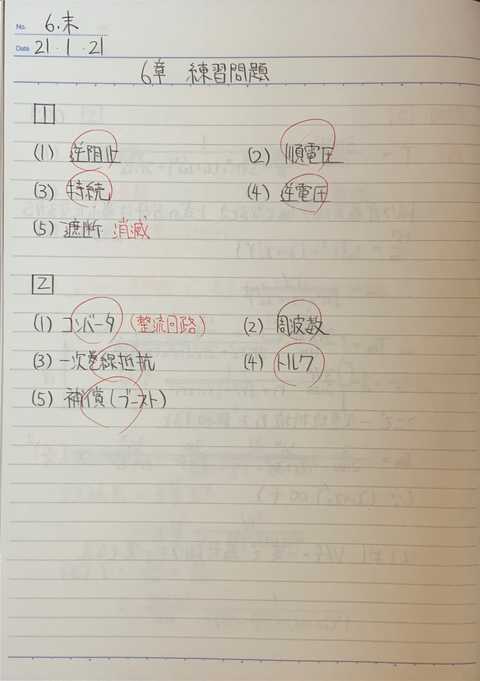 No. 6.末
Date 21・1・21
6章 練習問題
1
(1) 逆阻止 (2) 順電圧
(3) 持続 (4) 逆電圧
(5) 遮断 消滅
2
(1) コンバータ (整流回路) (2) 周波数
(3) 一次巻線抵抗 (4) トルク
(5) 補償 (ブースト)